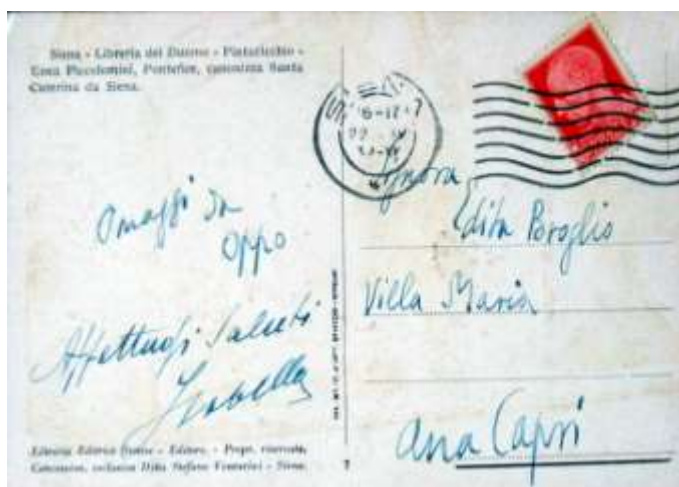 Siena - Libreria del Duomo - Pinturicchio -
Enea Piccolomini, Pontefice, canonizza Santa
Caterina da Siena.
Omaggi da
Oppo
Affettuosi Saluti
Isabella
Libreria Editrice Senese - Editore. - Propr. riservata,
Concession. esclusiva Ditta Stefano Venturini - Siena.
7
Signora
Edita Broglio
Villa Maria
Ana Capri